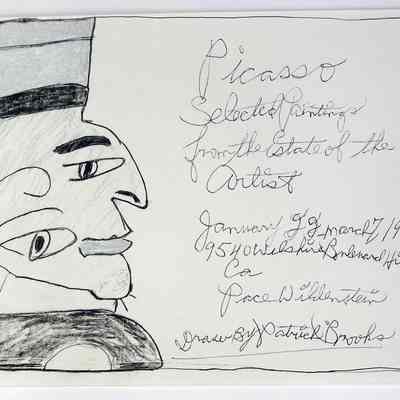 Picasso
Selected Paintings
from the Estate of the
Artist
January 99 march 7/9
9540 Wilshire Boulevard Hi
Ca
Pace Wildenstein
Drawn By Patrick Brooks